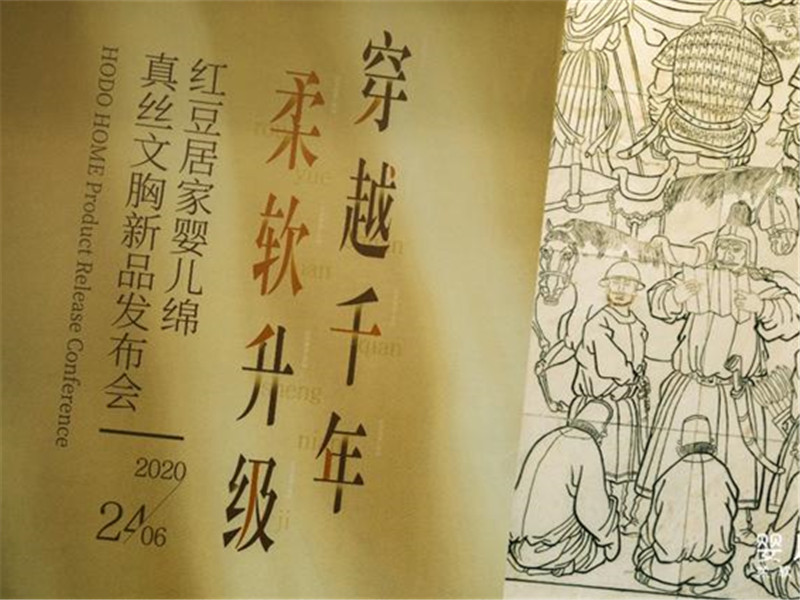 穿越千年
柔软升级
红豆居家婴儿绵
真丝文胸新品发布会
HODO HOME Product Release Conference
2020
24/06